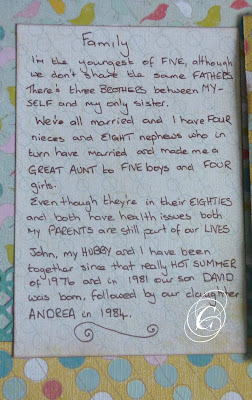 Family
I'm the youngest of FIVE, although
we don't share the same FATHERS
There's three BROTHERS between MY-
SELF and my only sister.
We're all married and I have FOUR
nieces and EIGHT nephews who in
turn have married and made me a
GREAT AUNT to FIVE boys and FOUR
girls.
Even though they're in their EIGHTIES
and both have health issues both
MY PARENTS are still part of our LIVES
John, my HUBBY and I have been
together since that really HOT SUMMER
of 1976 and in 1981 our son DAVID
was born, followed by our daughter
ANDREA in 1984.